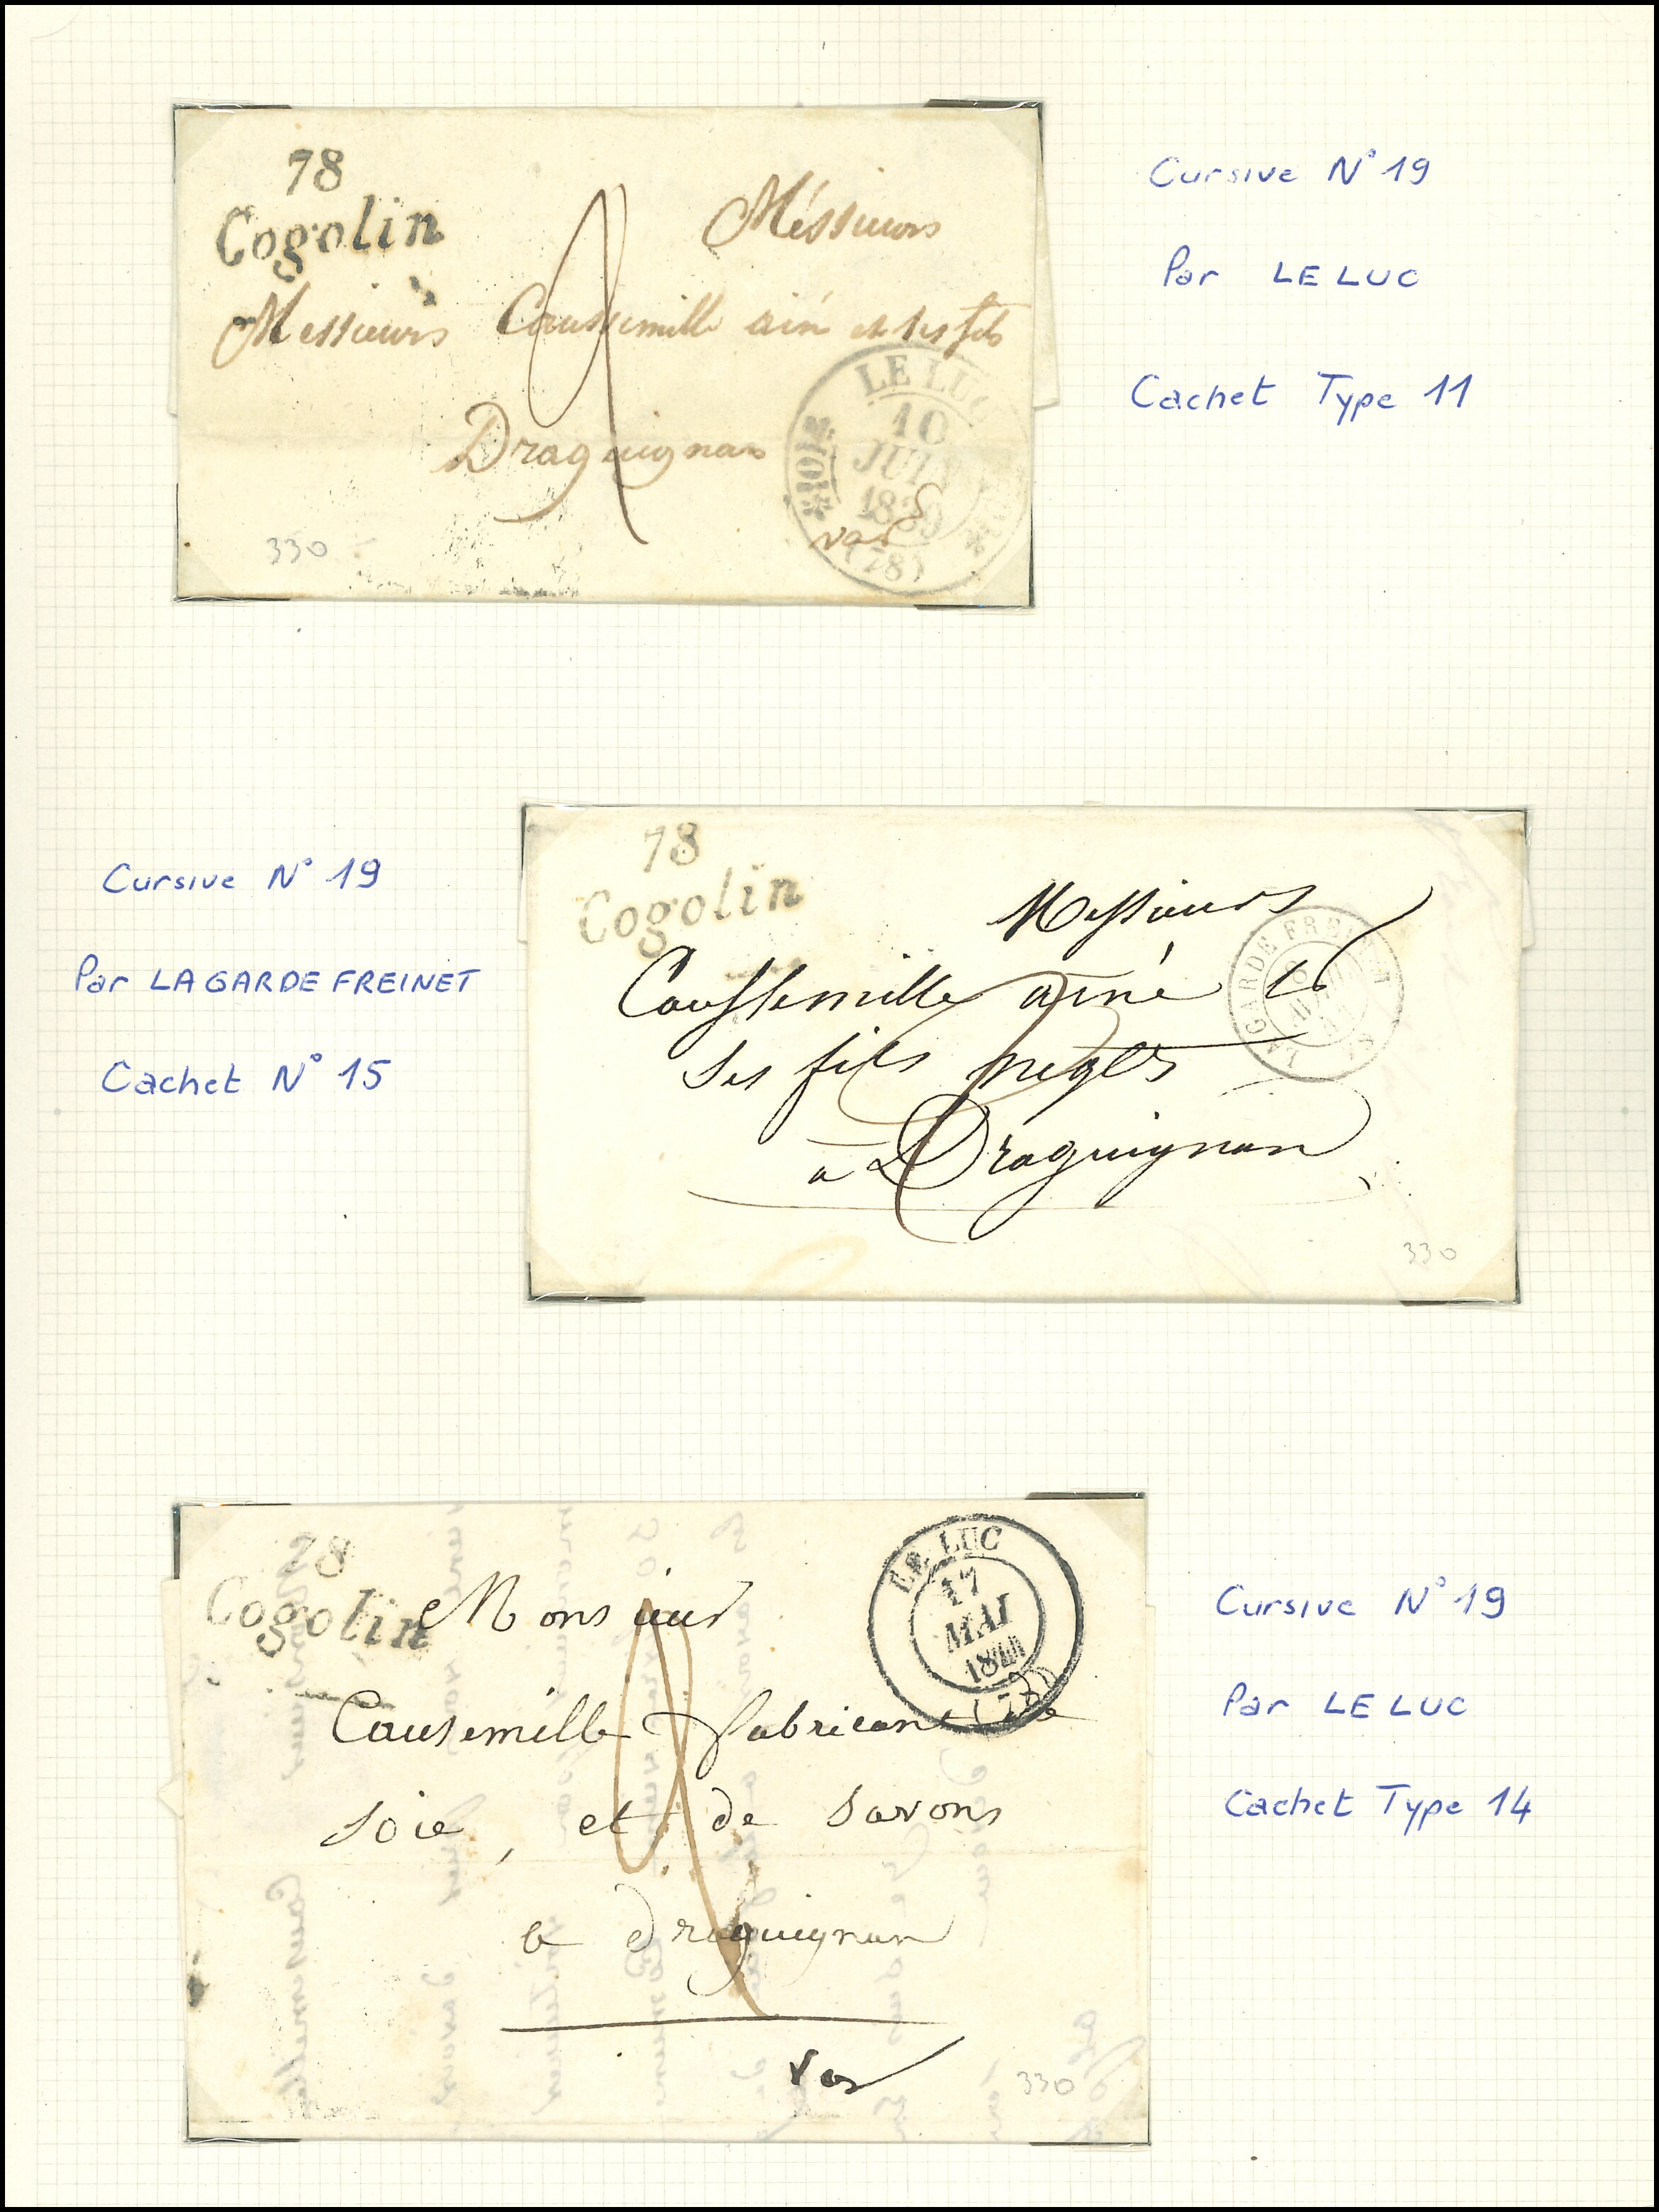 78
Cogolin
Méssieurs
Messieurs Caussemille ainé et ses fils
Draguignan
var
LE LUC
10
JUIN
1839
(78)
330
Cursive N° 19
Par LE LUC
Cachet Type 11
Cursive N° 19
Par LA GARDE FREINET
Cachet N° 15
78
Cogolin
Messieurs
Caussemille ainé &
ses fils negts
a Draguignan
LA GARDE FREINET
330
78
Cogolin
Monsieur
Causemille fabricant de
soie, et de savons
a draguignan
var
LE LUC
17
MAI
1844
(78)
330
Cursive N° 19
Par LE LUC
Cachet Type 14